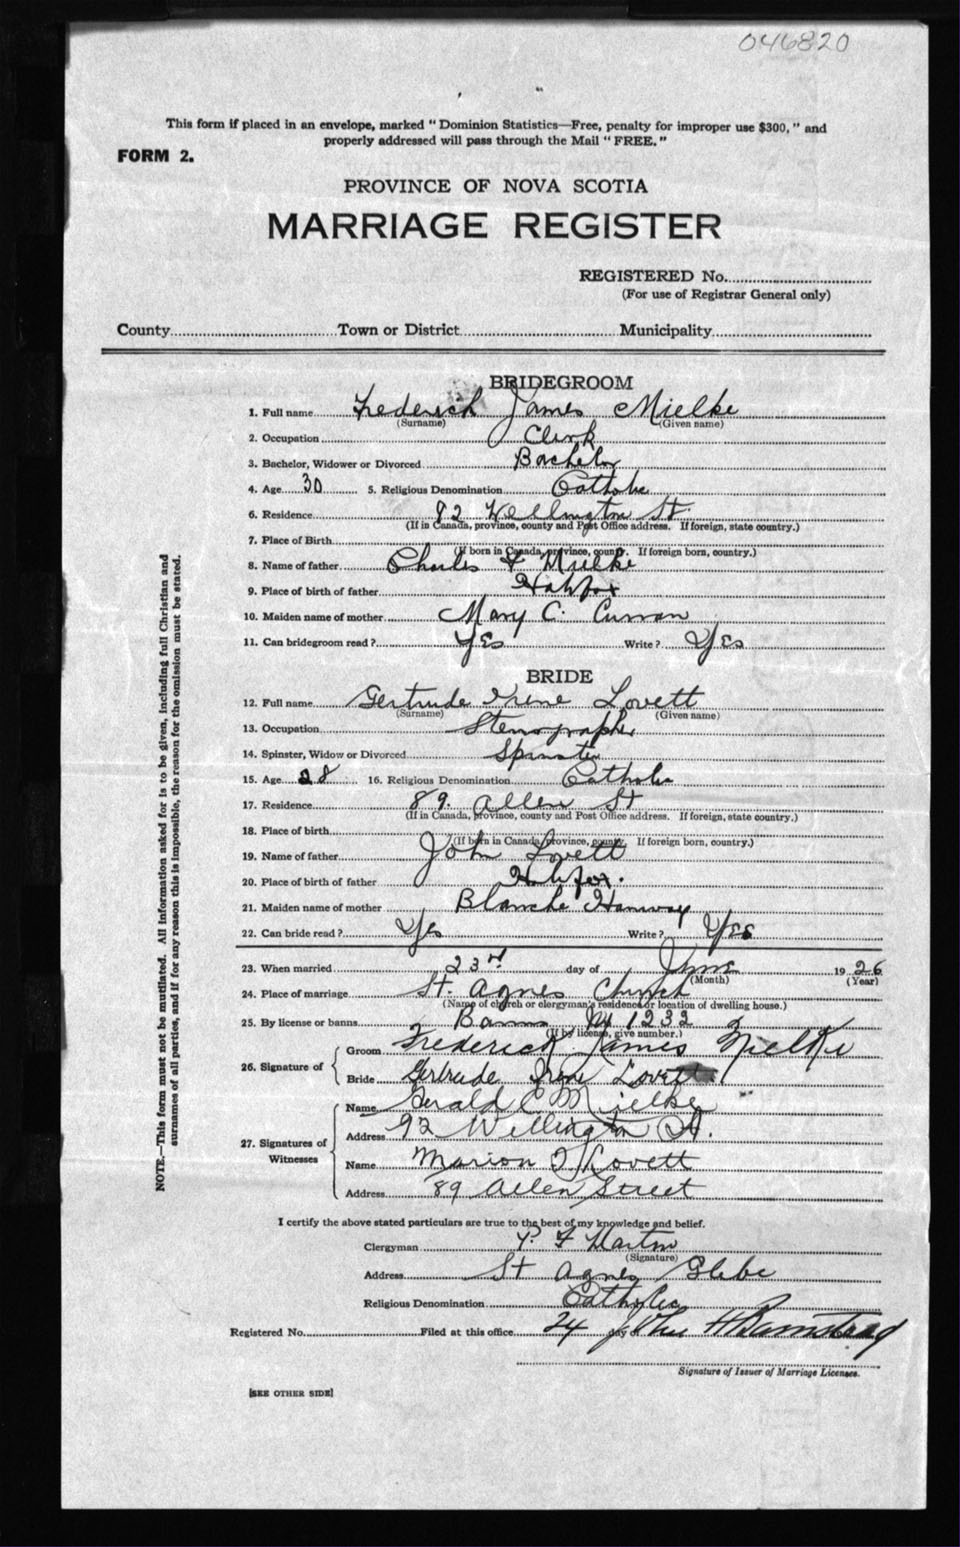 046820
This form if placed in an envelope, marked " Dominion Statistics—Free, penalty for improper use $300, " and
properly addressed will pass through the Mail " FREE. "
FORM 2.
PROVINCE OF NOVA SCOTIA
MARRIAGE REGISTER
REGISTERED No.
(For use of Registrar General only)
County Town or District Municipality
BRIDEGROOM
1. Full name Frederick James Mielke
(Surname) (Given name)
2. Occupation Clerk
3. Bachelor, Widower or Divorced Bachelor
4. Age 30 5. Religious Denomination Catholic
6. Residence 92 Wellington St.
(If in Canada, province, county and Post Office address. If foreign, state country.)
7. Place of Birth
(If born in Canada, province, county. If foreign born, country.)
8. Name of father Charles F Mielke
9. Place of birth of father Halifax
10. Maiden name of mother Mary C. Curran
11. Can bridegroom read ? Yes Write ? Yes
BRIDE
12. Full name Gertrude Irene Lovett
(Surname) (Given name)
13. Occupation Stenographer
14. Spinster, Widow or Divorced Spinster
15. Age 28 16. Religious Denomination Catholic
17. Residence 89. Allen St
(If in Canada, province, county and Post Office address. If foreign, state country.)
18. Place of birth
(If born in Canada, province, county. If foreign born, country.)
19. Name of father John Lovett
20. Place of birth of father Halifax.
21. Maiden name of mother Blanche Hanway
22. Can bride read ? Yes Write ? Yes
23. When married 23rd day of June 1926
(Month) (Year)
24. Place of marriage St. Agnes Church
(Name of church or clergyman's residence or location of dwelling house.)
25. By license or banns Banns 1232
(If by license, give number.)
26. Signature of
Groom Frederick James Mielke
Bride Gertrude Irene Lovett
27. Signatures of Witnesses
Name Gerald C Mielke
Address 92 Wellington St.
Name Marion Lovett
Address 89 Allen Street
I certify the above stated particulars are true to the best of my knowledge and belief.
Clergyman Martin
(Signature)
Address St Agnes Glebe
Religious Denomination Catholic
Registered No. Filed at this office 24 day of John H Barnstead
Signature of Issuer of Marriage Licenses.
[SEE OTHER SIDE]
NOTE.—This form must not be mutilated. All information asked for is to be given, including full Christian and
surnames of all parties, and if for any reason this is impossible, the reason for the omission must be stated.